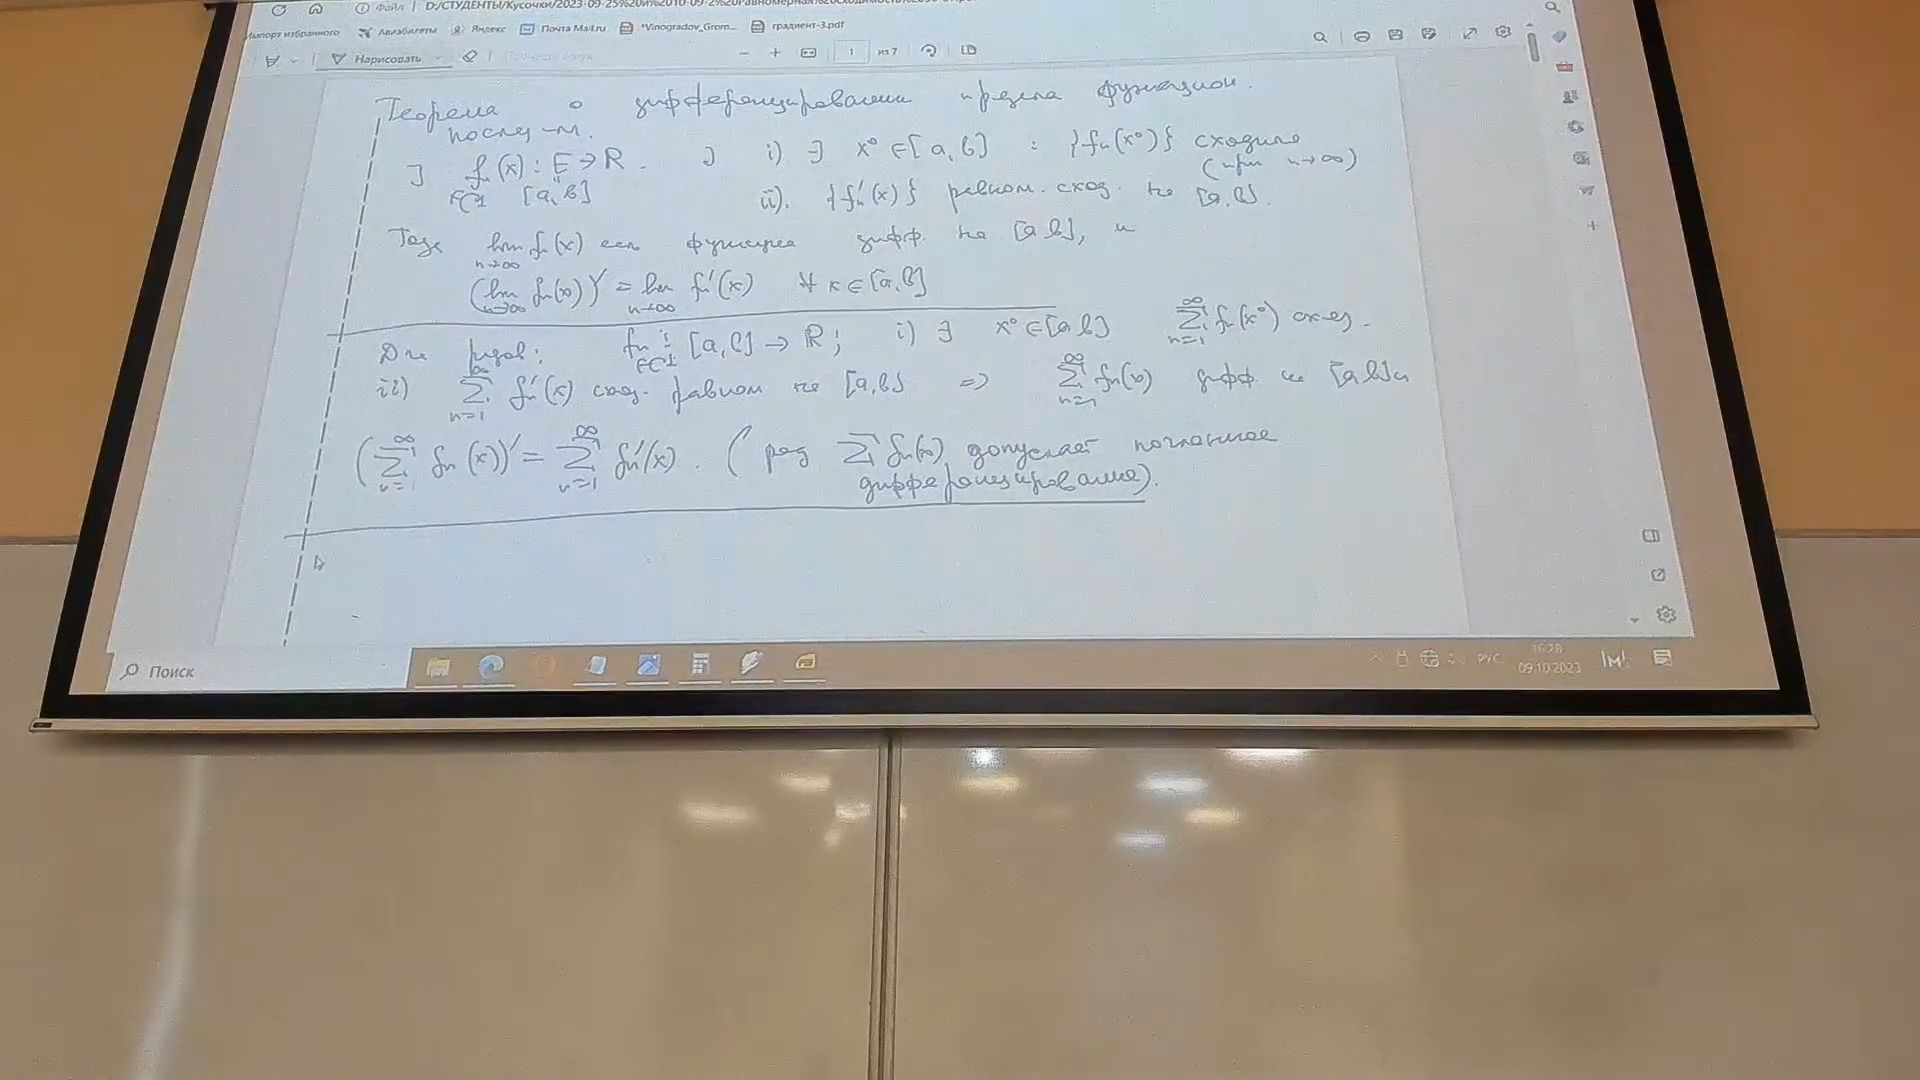 Файл D:/СТУДЕНТЫ/Кусочки/2023-09-25%20и%2010-09-2%20Равномерная%20сходимость%20
Импорт избранного Авиабилеты Яндекс Почта Mail.ru *Vinogradov_Grom... градиент-3.pdf
Нарисовать 1 из 7
Теорема о дифференцировании предела функцион.
послед-ти.
] fn(x) : E → R. ] i) ∃ x° ∈ [a, b] : {fn(x°)} сходится
(при n→∞)
∈C¹ [a, b] ii). {fn'(x)} равном. сход. на [a, b].
Тогда lim fn(x) есть функция дифф. на [a b], и
n→∞
(lim fn(x))' = lim fn'(x) ∀ x ∈ [a, b]
n→∞ n→∞
Для рядов: fn : [a, b] → R; i) ∃ x° ∈ [a b] ∞∑n=1 fn(x°) сход.
∈C¹
ii) ∞∑n=1 fn'(x) сход. равном на [a, b] => ∞∑n=1 fn(x) дифф на [a b] и
(∞∑n=1 fn(x))' = ∞∑n=1 fn'(x). (ряд ∑ fn(x) допускает почленное
дифференцирование).
Поиск
РУС 16:28
09.10.2023